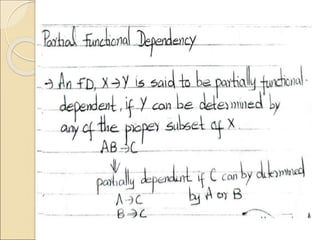 Partial Functional Dependency
→ An FD, X→Y is said to be partially functional
dependent, if Y can be determined by
any of the proper subset of X.
AB→C
⇓
partially dependent if C can by determined
A→C by A or B
B→C